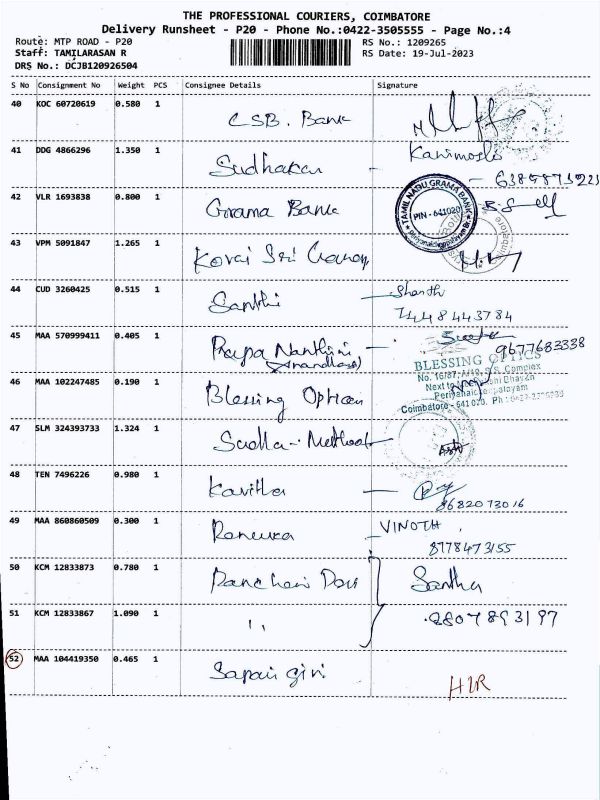 THE PROFESSIONAL COURIERS, COIMBATORE
Delivery Runsheet - P20 - Phone No.:0422-3505555 - Page No.:4
Route: MTP ROAD - P20 RS No.: 1209265
Staff: TAMILARASAN R RS Date: 19-Jul-2023
DRS No.: DCJB120926504
S No Consignment No Weight PCS Consignee Details Signature
40 KOC 60720619 0.580 1 CSB. Bank
41 DDG 4866296 1.350 1 Sudhakar - Kanimosli
42 VLR 1693838 0.800 1 Grama Bank
TAMIL NADU GRAMA BANK
PIN - 641020
43 VPM 5091847 1.265 1 Kovai Sri
44 CUD 3260425 0.515 1 Santhi - Shanth
7448443784
45 MAA 570999411 0.405 1 9677683338
46 MAA 102247485 0.190 1 Blessing
BLESSING OPTICS
Complex
Next to
Coimbatore - 641 020. Ph :
47 SLM 324393733 1.324 1
48 TEN 7496226 0.980 1 Kavitha -
8682073016
49 MAA 860860509 0.300 1 Renuka - VINOTH
8778473155
50 KCM 12833873 0.780 1 Santha
51 KCM 12833867 1.090 1 " 9807893197
52 MAA 104419350 0.465 1